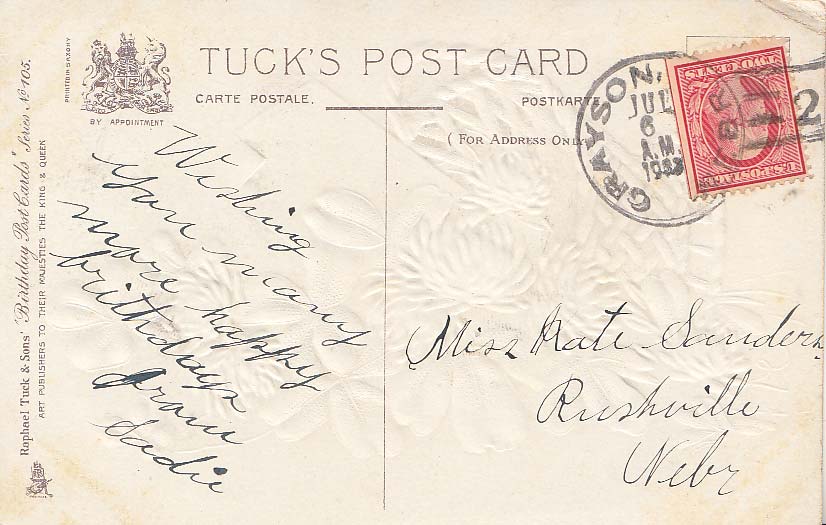 PRINTED IN SAXONY
BY APPOINTMENT
TUCK'S POST CARD
CARTE POSTALE.
POSTKARTE
( FOR ADDRESS ONLY
Raphael Tuck & Sons' "Birthday Post Cards" Series No 105.
ART PUBLISHERS TO THEIR MAJESTIES THE KING & QUEEN
GRAYSON,
JUL
6
A.M.
2
U.S. POSTAGE
TWO CENTS
Wishing
you many
more happy
brithdays
from
Sadie
Miss Kate Sanders
Rushville
Nebr